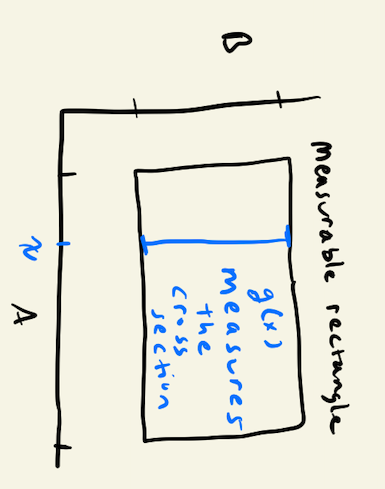 measurable rectangle
B
g(x)
measures
the
cross
section
x
A